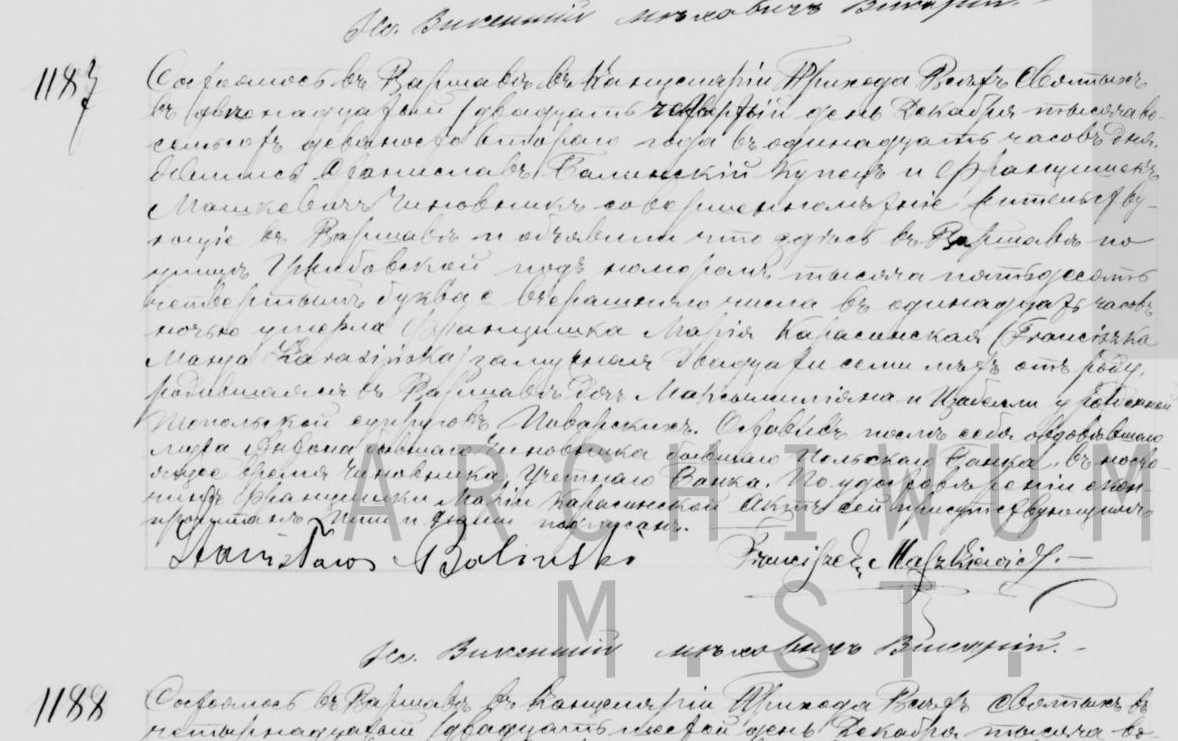 Кс. Викентий Мѣховичъ Викарій.
1187
Состоялось въ Варшавѣ въ Канцеляріи Прихода Всѣхъ Святыхъ
въ двѣнадцатый /двадцать четвертый день Декабря тысяча во-
семьсотъ девяносто втораго года въ одинадцать часовъ дня.
Явились Станиславъ Балинскій Купецъ и Францишекъ
Машкевичъ Чиновникъ совершеннолѣтніе жительству-
ющіе въ Варшавѣ и объявили что здѣсь въ Варшавѣ по
улицѣ Гржибовской подъ номеромъ тысяча пятьдесятъ
четвертымъ буква с вчерашняго числа въ одинадцать часовъ
ночью умерла Францишка Марія Карасинская (Franciszka
Marya Karasińska) замужная двадцати семи лѣтъ отъ роду,
родившаяся въ Варшавѣ дочь Максымиліана и Изабелли урожденной
Топольской супруговъ Поварскихъ. Оставивъ послѣ себя овдовѣвшаго
мужа Антона бывшаго Чиновника бывшаго Польскаго Банка, въ насто-
ящее время Чиновника Учетнаго Банка. По удостовѣреніи о кон-
чинѣ Францишки Маріи Карасинской Актъ сей присутствующимъ
прочитанъ Нами и ими подписанъ.
Stanisław Baliński Franciszek Maszkiewicz.
Кс. Викентий Мѣховичъ Викарій.
1188
Состоялось въ Варшавѣ въ Канцеляріи Прихода Всѣхъ Святыхъ въ
четырнадцатый /двадцать шестой день Декабря тысяча во-
ARCHIWUM
M.ST.